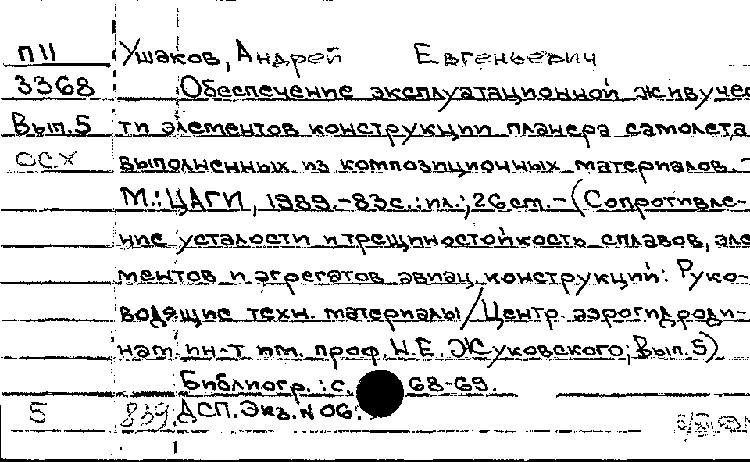 П11 Ушаков, Андрей Евгеньевич
3368 Обеспечение эксплуатационной живучес
Вып.5 ти элементов конструкции планера самолета,
ОСХ выполненных из композиционных материалов.-
М.: ЦАГИ, 1989.-83с.:ил.; 26 см.-(Сопротивле-
ние усталости и трещиностойкость сплавов, эле
ментов и агрегатов авиац. конструкций: Руко-
водящие техн. материалы/Центр. аэрогидроди-
нам. ин-т им. проф. Н.Е. Жуковского; Вып.5)
Библиогр.: с. 68-69.
5 839 ДСП. Экз. N 06.